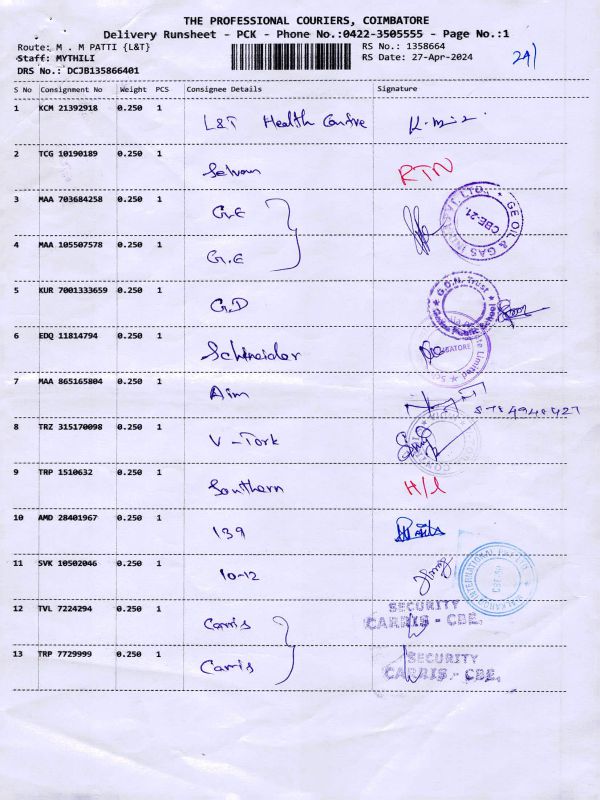 THE PROFESSIONAL COURIERS, COIMBATORE
Delivery Runsheet - PCK - Phone No.:0422-3505555 - Page No.:1
Route: M . M PATTI {L&T} RS No.: 1358664
Staff: MYTHILI RS Date: 27-Apr-2024
DRS No.: DCJB135866401
S No Consignment No Weight PCS Consignee Details Signature
1 KCM 21392918 0.250 1 L&T Health Centre
2 TCG 10190189 0.250 1 Selvam RTN
3 MAA 703684258 0.250 1 G.E
GE OIL & GAS CBE-21.
4 MAA 105507578 0.250 1 G.E
5 KUR 7001333659 0.250 1 G.D
G.D.N. Trust Public School
6 EDQ 11814794 0.250 1 Schneider
7 MAA 865165804 0.250 1 Aim
8 TRZ 315170098 0.250 1 V-Tork
9 TRP 1510632 0.250 1 Southern H/l
10 AMD 28401967 0.250 1 139
11 SVK 10502046 0.250 1 10-12
INTERNATIONAL
12 TVL 7224294 0.250 1 Carris SECURITY
CARRIS - CBE.
13 TRP 7729999 0.250 1 Carris SECURITY
CARRIS - CBE.